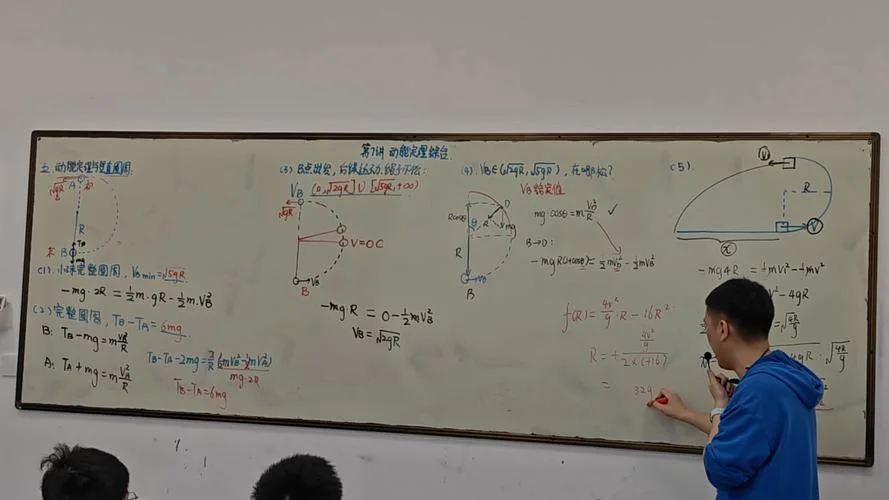 第7讲 动能定理综合.
五. 动能定理与竖直圆周.
√gR
A
R
TB
B
mg
(1). 小球完整圆周, VB min = √5gR
-mg·2R = ½m·gR - ½m·VB²
(2) 完整圆周, TB-TA = 6mg
B: TB-mg = m VB²/R
A: TA+mg = m VA²/R
TB-TA-2mg = 2/R (½mVB²-½mVA²)
mg·2R
TB-TA=6mg
(3) B点出发, 后续运动, 绳子不松:
VB (0,√2gR] ∪ [√5gR,+∞)
√gR
V=0
C
B
VB
-mg·R = 0-½mVB²
VB=√2gR
(4). VB∈(√2gR,√5gR), 在哪松?
VB 给定值
mg·cosθ=m VD²/R ✓
B→D:
-mgR(1+cosθ)=½mVD²-½mVB²
Rcosθ
θ
D
mg
R
B
VB
f(R)= 4v²/g ·R-16R²
4v²/g
2×(-16)
=
32g
(5).
V
R
V
x
-mg4R=½mV₁²-½mv²